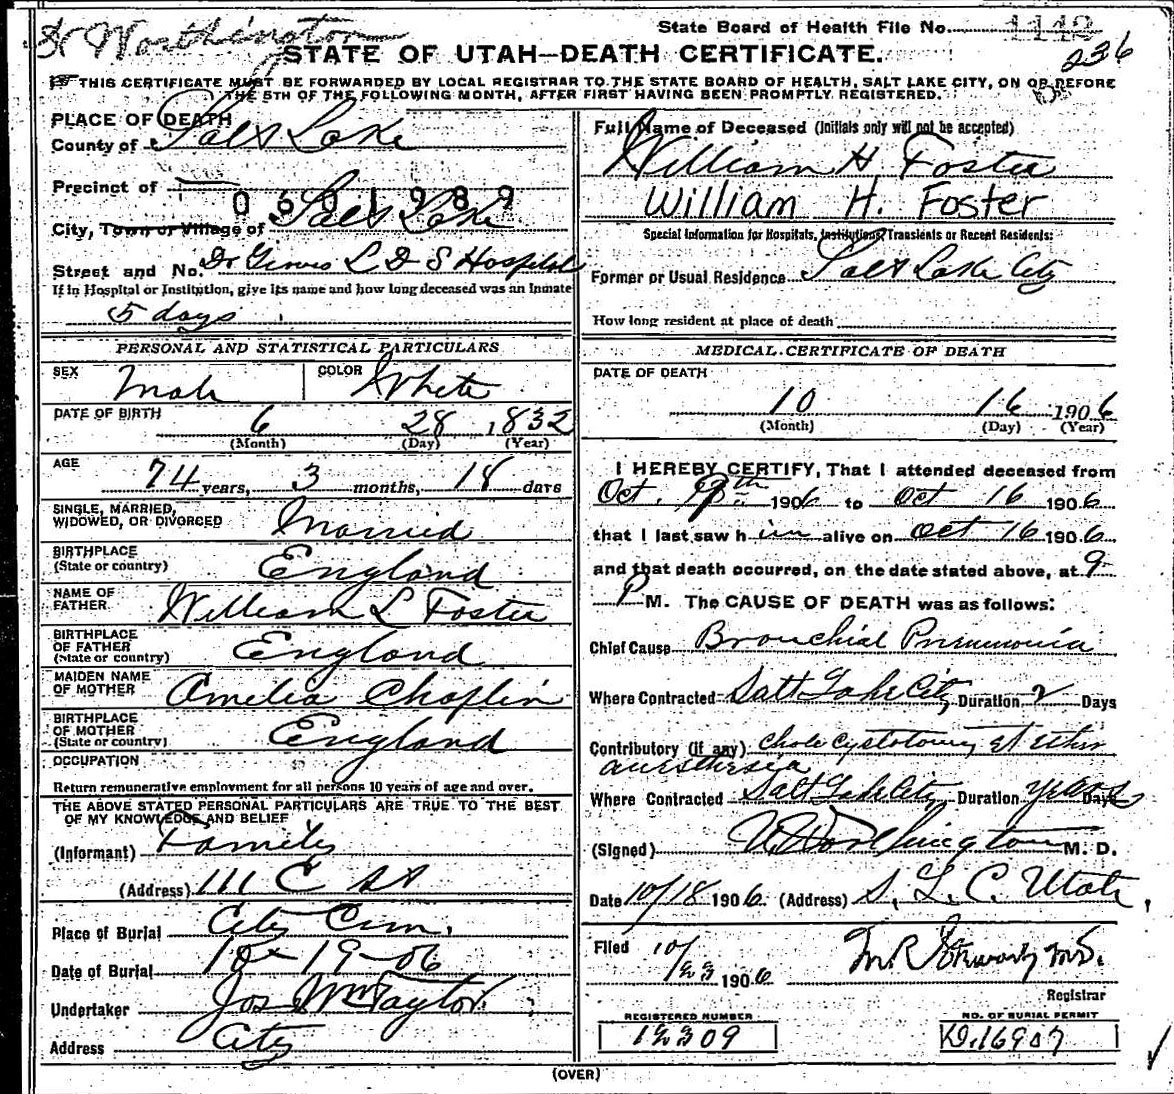 Worthington
State Board of Health File No. 1142
STATE OF UTAH—DEATH CERTIFICATE.
236
THIS CERTIFICATE MUST BE FORWARDED BY LOCAL REGISTRAR TO THE STATE BOARD OF HEALTH, SALT LAKE CITY, ON OR BEFORE
THE 5TH OF THE FOLLOWING MONTH, AFTER FIRST HAVING BEEN PROMPTLY REGISTERED.
PLACE OF DEATH
County of Salt Lake
Precinct of
0601989
City, Town or Village of Salt Lake
Street and No. Dr Groves L D S Hospital
If in Hospital or Institution, give its name and how long deceased was an inmate
5 days
PERSONAL AND STATISTICAL PARTICULARS
SEX Male COLOR White
DATE OF BIRTH 6 28 1832
(Month) (Day) (Year)
AGE 74 years, 3 months, 18 days
SINGLE, MARRIED,
WIDOWED, OR DIVORCED Married
BIRTHPLACE
(State or country) England
NAME OF
FATHER William L Foster
BIRTHPLACE
OF FATHER
(State or country) England
MAIDEN NAME
OF MOTHER Amelia Choplin
BIRTHPLACE
OF MOTHER
(State or country) England
OCCUPATION
Return remunerative employment for all persons 10 years of age and over.
THE ABOVE STATED PERSONAL PARTICULARS ARE TRUE TO THE BEST
OF MY KNOWLEDGE AND BELIEF
(Informant) Family
(Address) 111 C St
Place of Burial City Cem.
Date of Burial 10-19-06
Undertaker Jos Wm Taylor
Address City
Full Name of Deceased (Initials only will not be accepted)
William H Foster
William H. Foster
Special Information for Hospitals, Institutions, Transients or Recent Residents:
Former or Usual Residence Salt Lake City
How long resident at place of death
MEDICAL CERTIFICATE OF DEATH
DATE OF DEATH
10 16 1906
(Month) (Day) (Year)
I HEREBY CERTIFY, That I attended deceased from
Oct. 1906 to Oct 16 1906
that I last saw him alive on Oct 16 1906
and that death occurred, on the date stated above, at 9
P M. The CAUSE OF DEATH was as follows:
Chief Cause Bronchial Pneumonia
Where Contracted Salt Lake City Duration 2 Days
Contributory (if any) Cholecystotomy et ether
anesthesia
Where Contracted Salt Lake City Duration years Days
(Signed) Worthington M. D.
Date 10/18 1906. (Address) S. L. C. Utah,
Filed 10/23 1906
Registrar
REGISTERED NUMBER
12309
NO. OF BURIAL PERMIT
D.16907
(OVER)